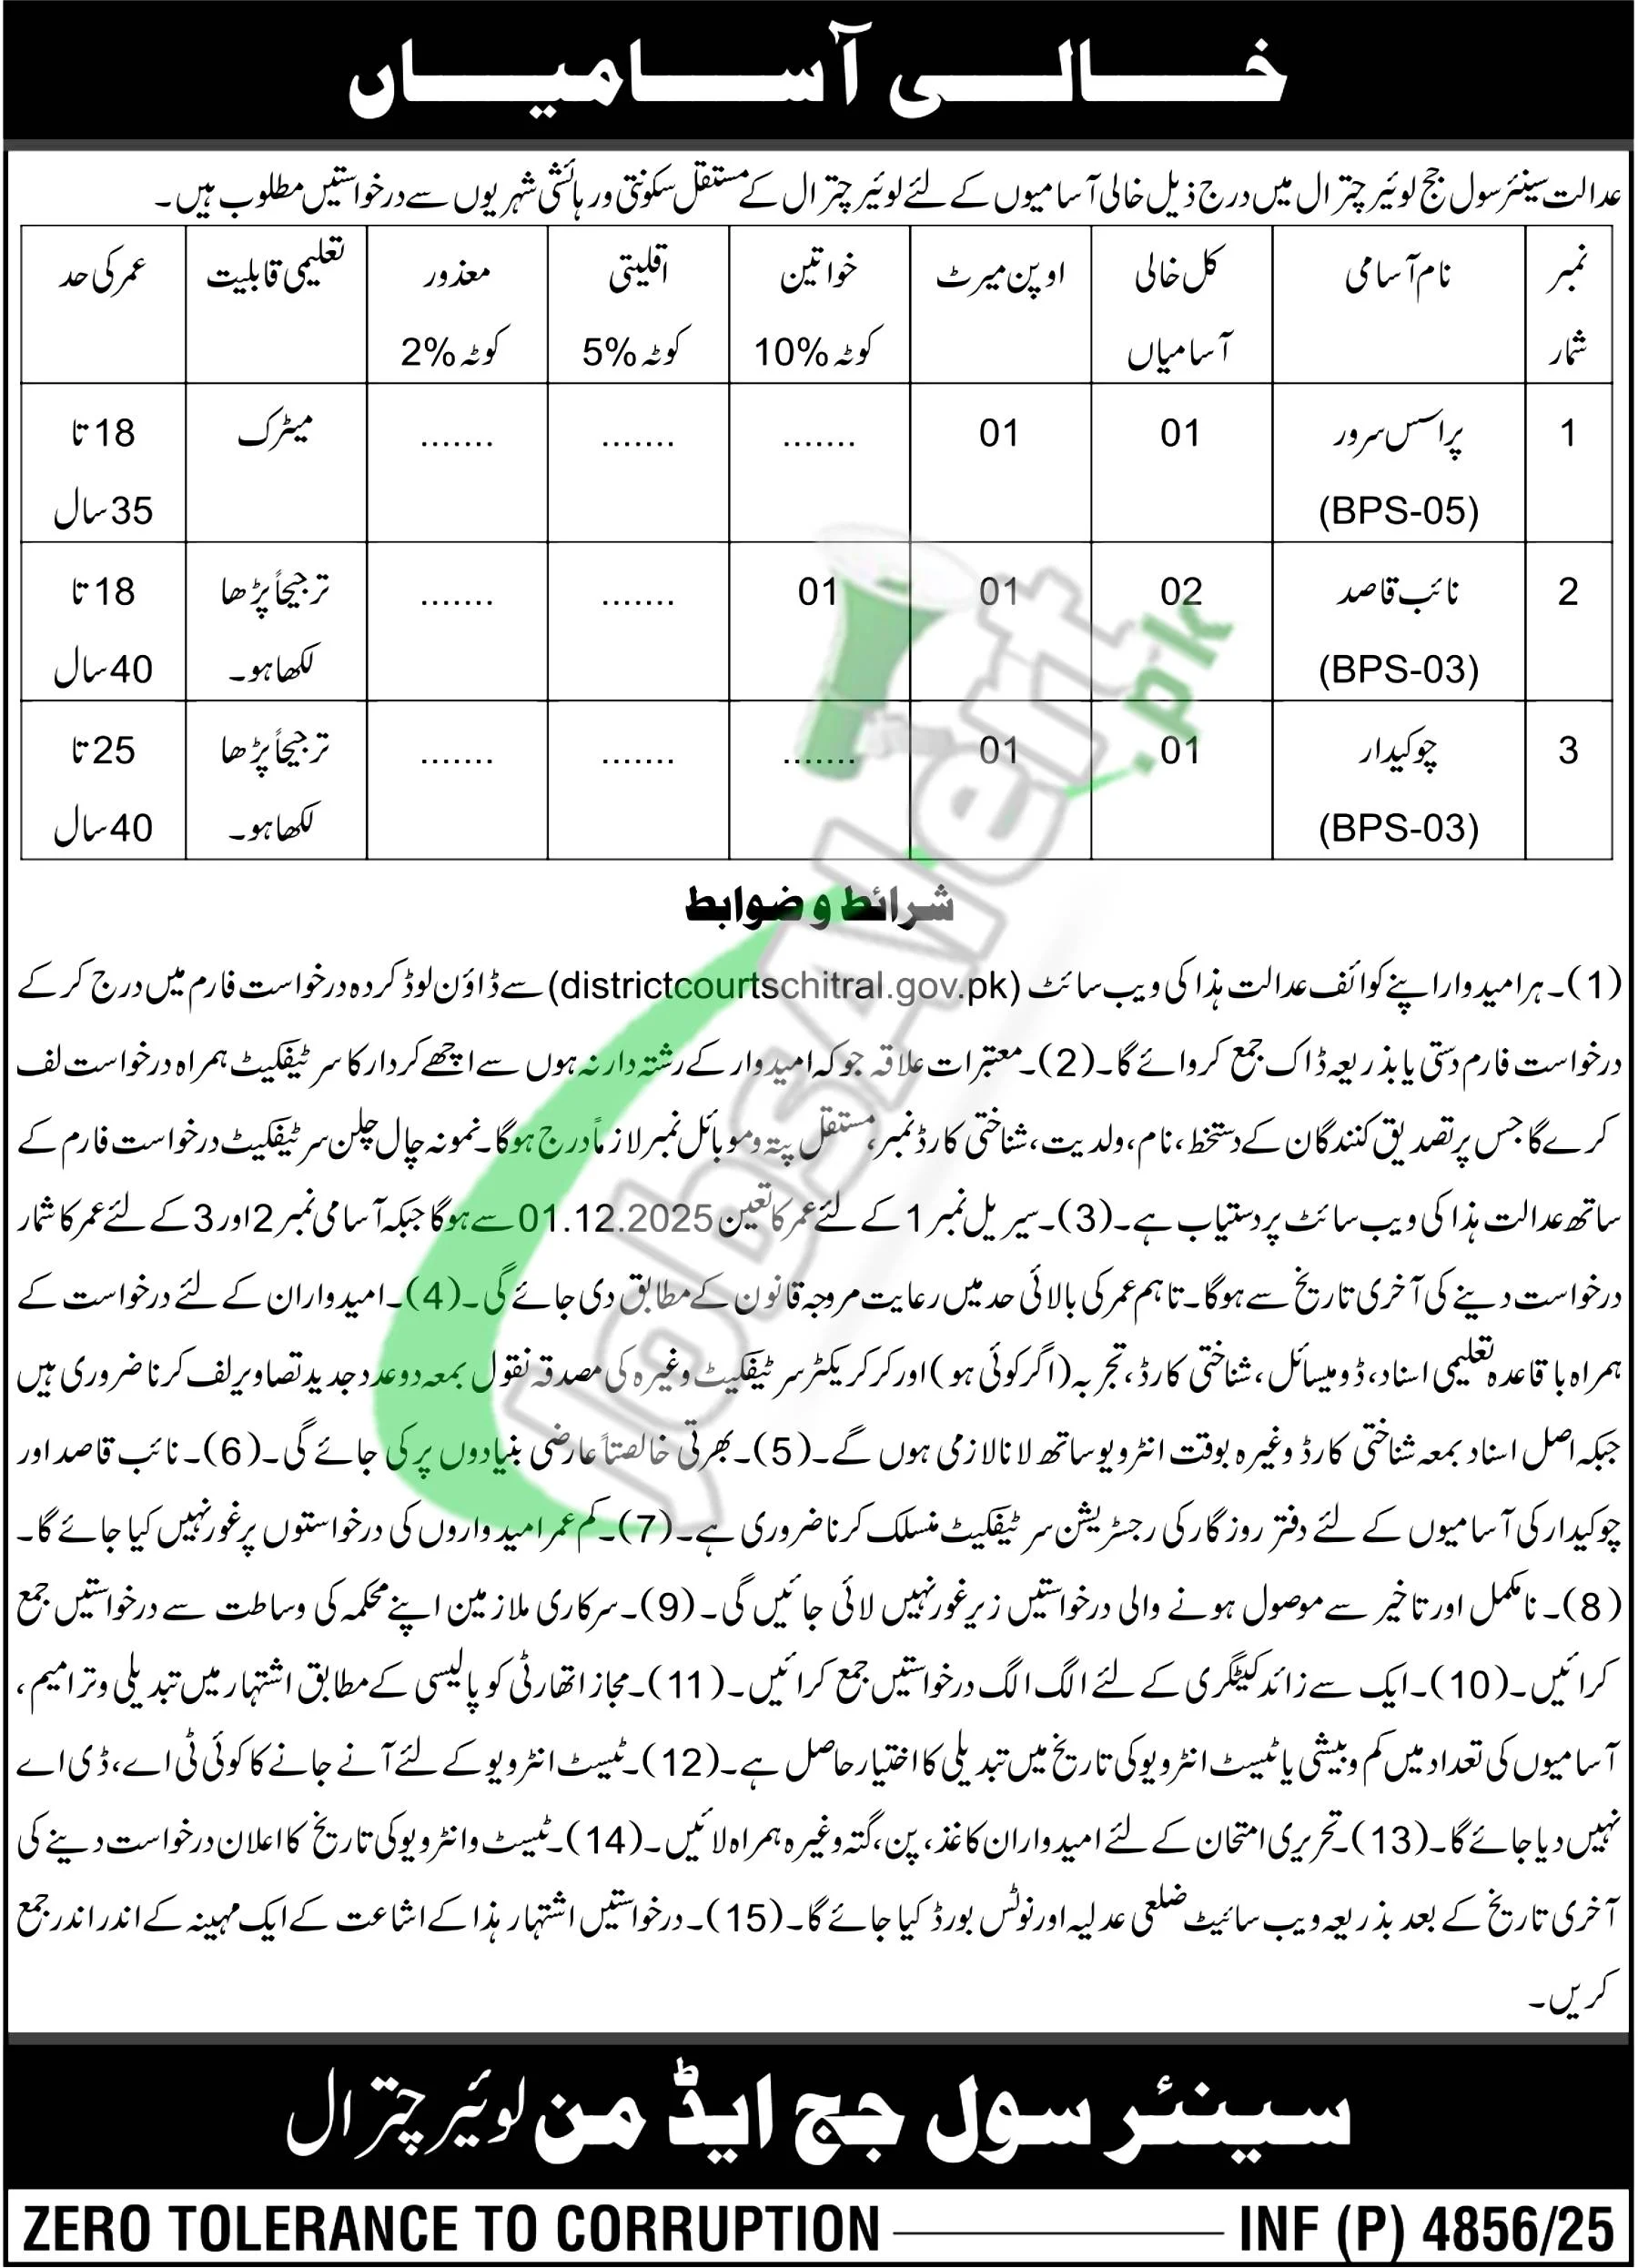 خالی آسامیاں
عدالت سینئر سول جج لوئیر چترال میں درج ذیل خالی آسامیوں کے لئے لوئیر چترال کے مستقل سکونتی ورہائشی شہریوں سے درخواستیں مطلوب ہیں۔
نمبر شمار | نام آسامی | کل خالی آسامیاں | اوپن میرٹ | خواتین کوٹہ 10% | اقلیتی کوٹہ 5% | معذور کوٹہ 2% | تعلیمی قابلیت | عمر کی حد
1 | پراسس سرور (BPS-05) | 01 | 01 | ....... | ....... | ....... | میٹرک | 18 تا 35 سال
2 | نائب قاصد (BPS-03) | 02 | 01 | 01 | ....... | ....... | ترجیحاً پڑھا لکھا ہو۔ | 18 تا 40 سال
3 | چوکیدار (BPS-03) | 01 | 01 | ....... | ....... | ....... | ترجیحاً پڑھا لکھا ہو۔ | 25 تا 40 سال
شرائط و ضوابط
(1)۔ ہر امیدوار اپنے کوائف عدالت ہذا کی ویب سائٹ (districtcourtschitral.gov.pk) سے ڈاؤن لوڈ کردہ درخواست فارم میں درج کر کے
درخواست فارم دستی یا بذریعہ ڈاک جمع کروائے گا۔ (2)۔ معتبرات علاقہ جو کہ امیدوار کے رشتہ دار نہ ہوں سے اچھے کردار کا سرٹیفکیٹ ہمراہ درخواست لف
کرے گا جس پر تصدیق کنندگان کے دستخط، نام، ولدیت، شناختی کارڈ نمبر، مستقل پتہ و موبائل نمبر لازماً درج ہوگا۔ نمونہ چال چلن سرٹیفکیٹ درخواست فارم کے
ساتھ عدالت ہذا کی ویب سائٹ پر دستیاب ہے۔ (3)۔ سیریل نمبر 1 کے لئے عمر کا تعین 01.12.2025 سے ہوگا جبکہ آسامی نمبر 2 اور 3 کے لئے عمر کا شمار
درخواست دینے کی آخری تاریخ سے ہوگا۔ تاہم عمر کی بالائی حد میں رعایت مروجہ قانون کے مطابق دی جائے گی۔ (4)۔ امیدواران کے لئے درخواست کے
ہمراہ باقاعدہ تعلیمی اسناد، ڈومیسائل، شناختی کارڈ، تجربہ (اگر کوئی ہو) اور کرکریکٹر سرٹیفکیٹ وغیرہ کی مصدقہ نقول بمعہ دو عدد جدید تصاویر لف کرنا ضروری ہیں
جبکہ اصل اسناد بمعہ شناختی کارڈ وغیرہ بوقت انٹرویو ساتھ لانا لازمی ہوں گے۔ (5)۔ بھرتی خالصتاً عارضی بنیادوں پر کی جائے گی۔ (6)۔ نائب قاصد اور
چوکیدار کی آسامیوں کے لئے دفتر روزگار کی رجسٹریشن سرٹیفکیٹ منسلک کرنا ضروری ہے۔ (7)۔ کم عمر امیدواروں کی درخواستوں پر غور نہیں کیا جائے گا۔
(8)۔ نامکمل اور تاخیر سے موصول ہونے والی درخواستیں زیر غور نہیں لائی جائیں گی۔ (9)۔ سرکاری ملازمین اپنے محکمہ کی وساطت سے درخواستیں جمع
کرائیں۔ (10)۔ ایک سے زائد کیٹگری کے لئے الگ الگ درخواستیں جمع کرائیں۔ (11)۔ مجاز اتھارٹی کو پالیسی کے مطابق اشتہار میں تبدیلی و ترامیم،
آسامیوں کی تعداد میں کم و بیشی یا ٹیسٹ انٹرویو کی تاریخ میں تبدیلی کا اختیار حاصل ہے۔ (12)۔ ٹیسٹ انٹرویو کے لئے آنے جانے کا کوئی ٹی اے، ڈی اے
نہیں دیا جائے گا۔ (13)۔ تحریری امتحان کے لئے امیدواران کاغذ، پن، گتہ وغیرہ ہمراہ لائیں۔ (14)۔ ٹیسٹ و انٹرویو کی تاریخ کا اعلان درخواست دینے کی
آخری تاریخ کے بعد بذریعہ ویب سائیٹ ضلعی عدلیہ اور نوٹس بورڈ کیا جائے گا۔ (15)۔ درخواستیں اشتہار ہذا کے اشاعت کے ایک مہینہ کے اندر اندر جمع
کریں۔
JobsAlert.pk
سینئر سول جج ایڈمن لوئیر چترال
ZERO TOLERANCE TO CORRUPTION
INF (P) 4856/25